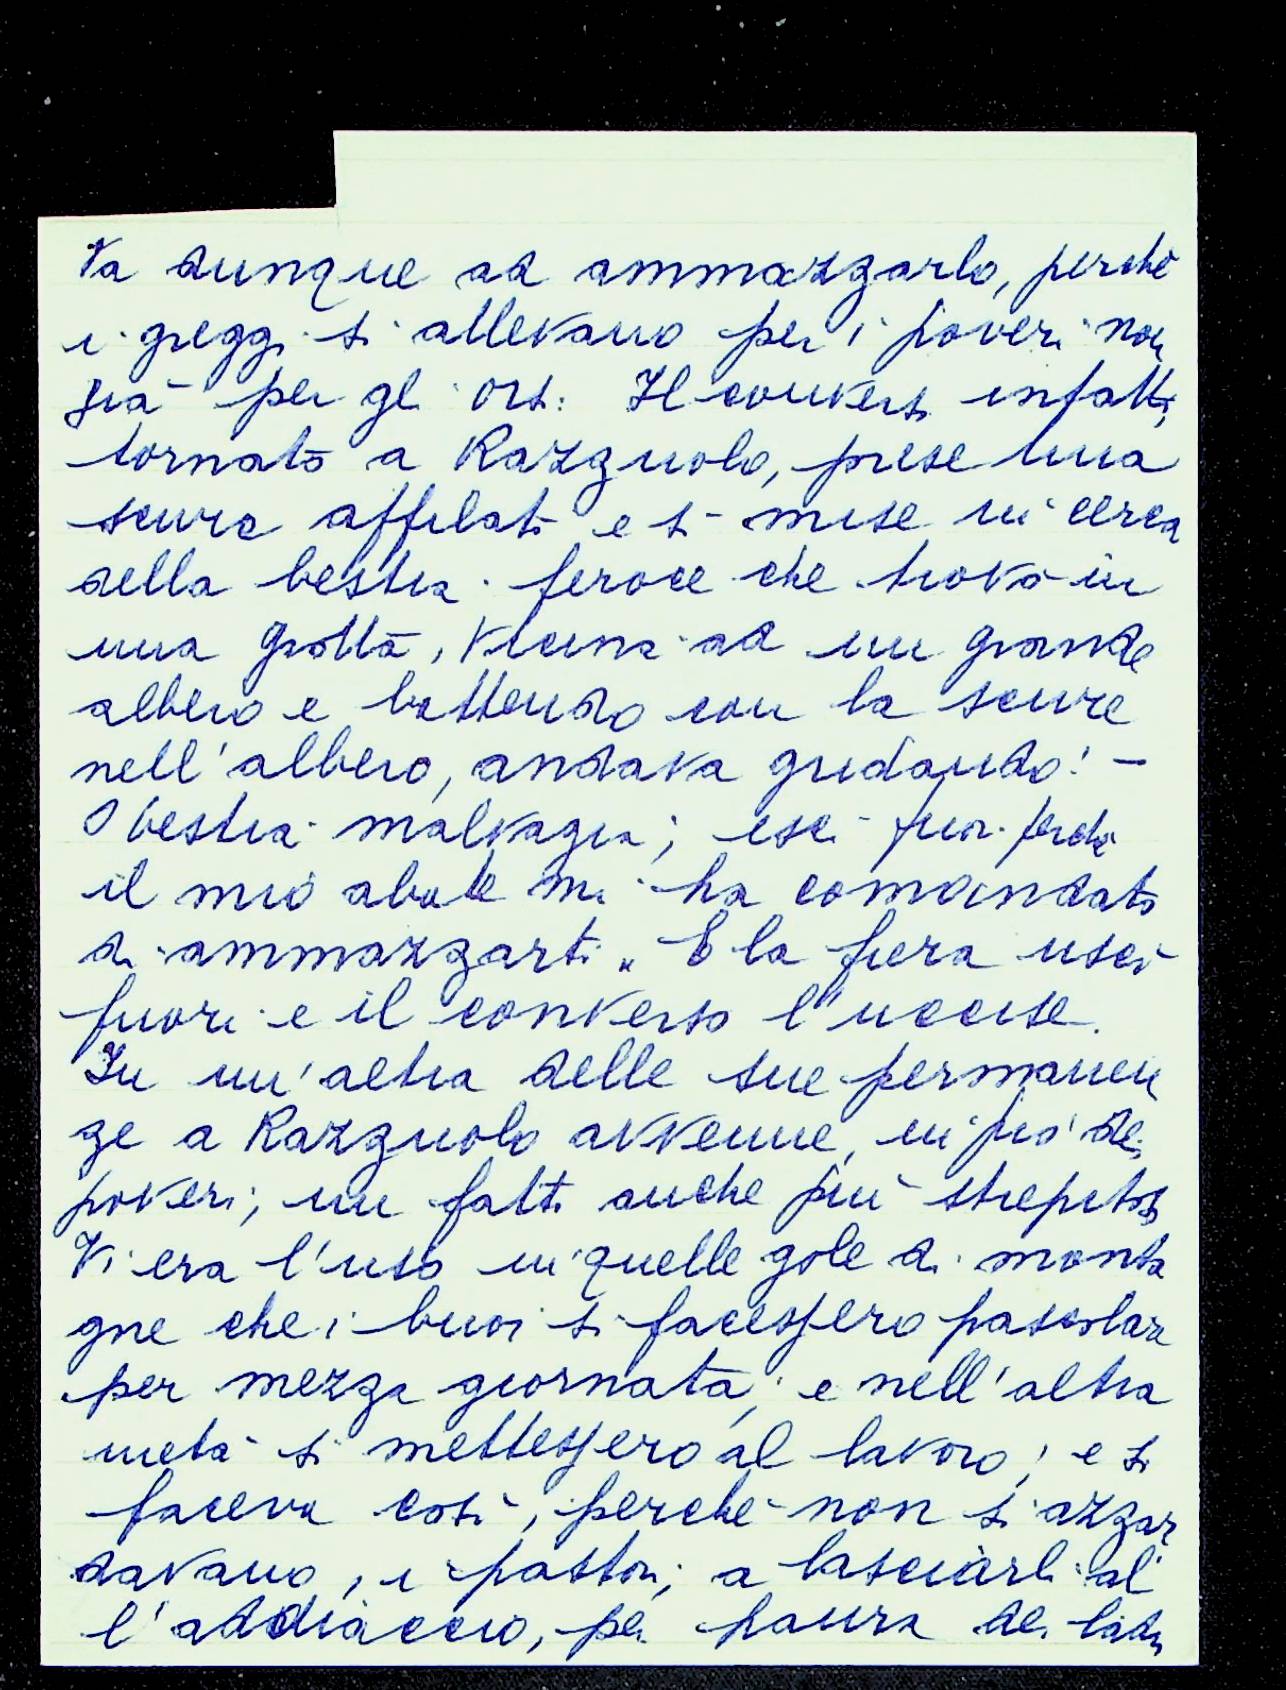 Va dunque ad ammazzarlo, perchè
i greggi si allevano per i poveri non
già per gli orsi. Il converso infatti,
tornato a Razzuolo, prese una
scure affilata e si mise in cerca
della bestia feroce che trovò in
una grotta, vicina ad un grande
albero e battendo con la scure
nell'albero, andava gridando: -
O bestia malvagia; esci fuori perchè
il mio abate mi ha comandato
di ammazzarti". E la fiera uscì
fuori e il converso l'uccise.
In un'altra delle sue permanen
ze a Razzuolo avvenne, in pro' dei
poveri, un fatto anche più strepitoso
Vi era l'uso in quelle gole di monta
gne che i buoi si facessero pascolare
per mezza giornata, e nell'altra
metà si mettessero al lavoro; e si
faceva così, perchè non si azzar
davano, i pastori, a lasciarli al
l'addiaccio, per paura dei ladri